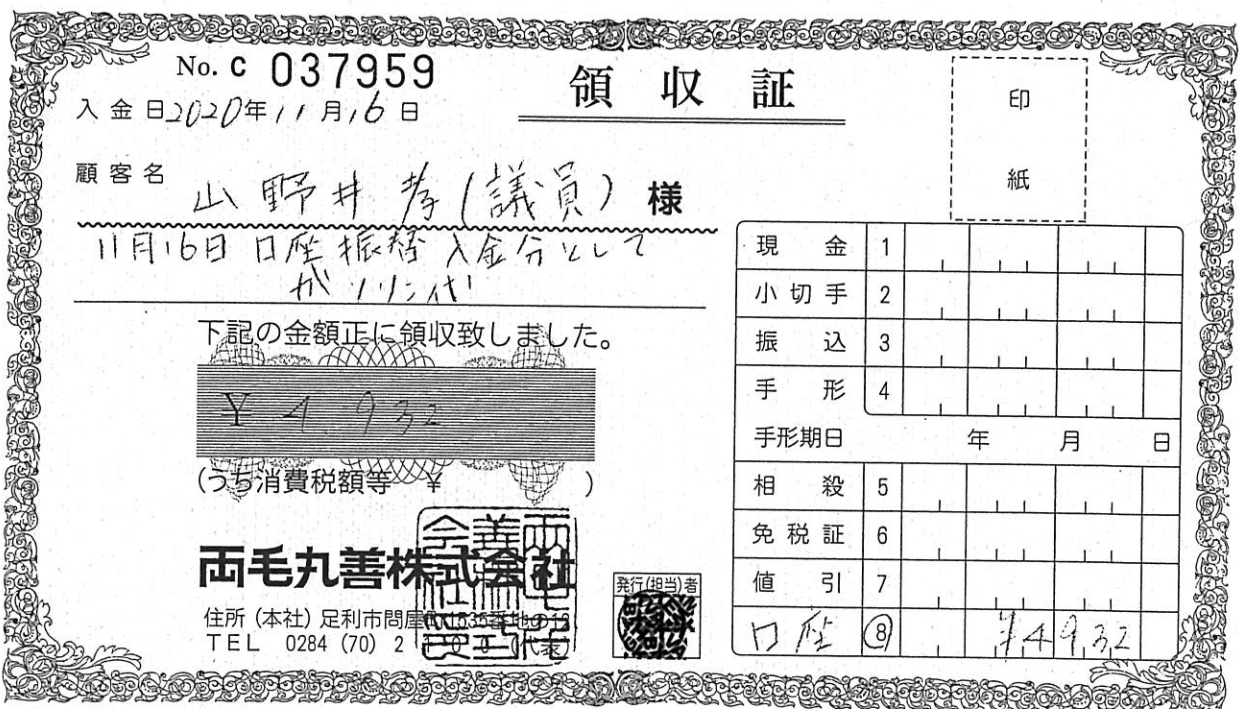 No. C 037959
領収証
入金日2020年11月16日
印
紙
顧客名 山野井孝(議員)様
11月16日 口座振替入金分として
ガソリン代
下記の金額正に領収致しました。
¥4,932
(うち消費税額等 ¥ )
両毛丸善株式会社
住所(本社)足利市問屋町1535番地の12
TEL 0284(70)2100(代表)
発行(担当)者
現金 1
小切手 2
振込 3
手形 4
手形期日 年 月 日
相殺 5
免税証 6
値引 7
口座 ⑧ ¥4932